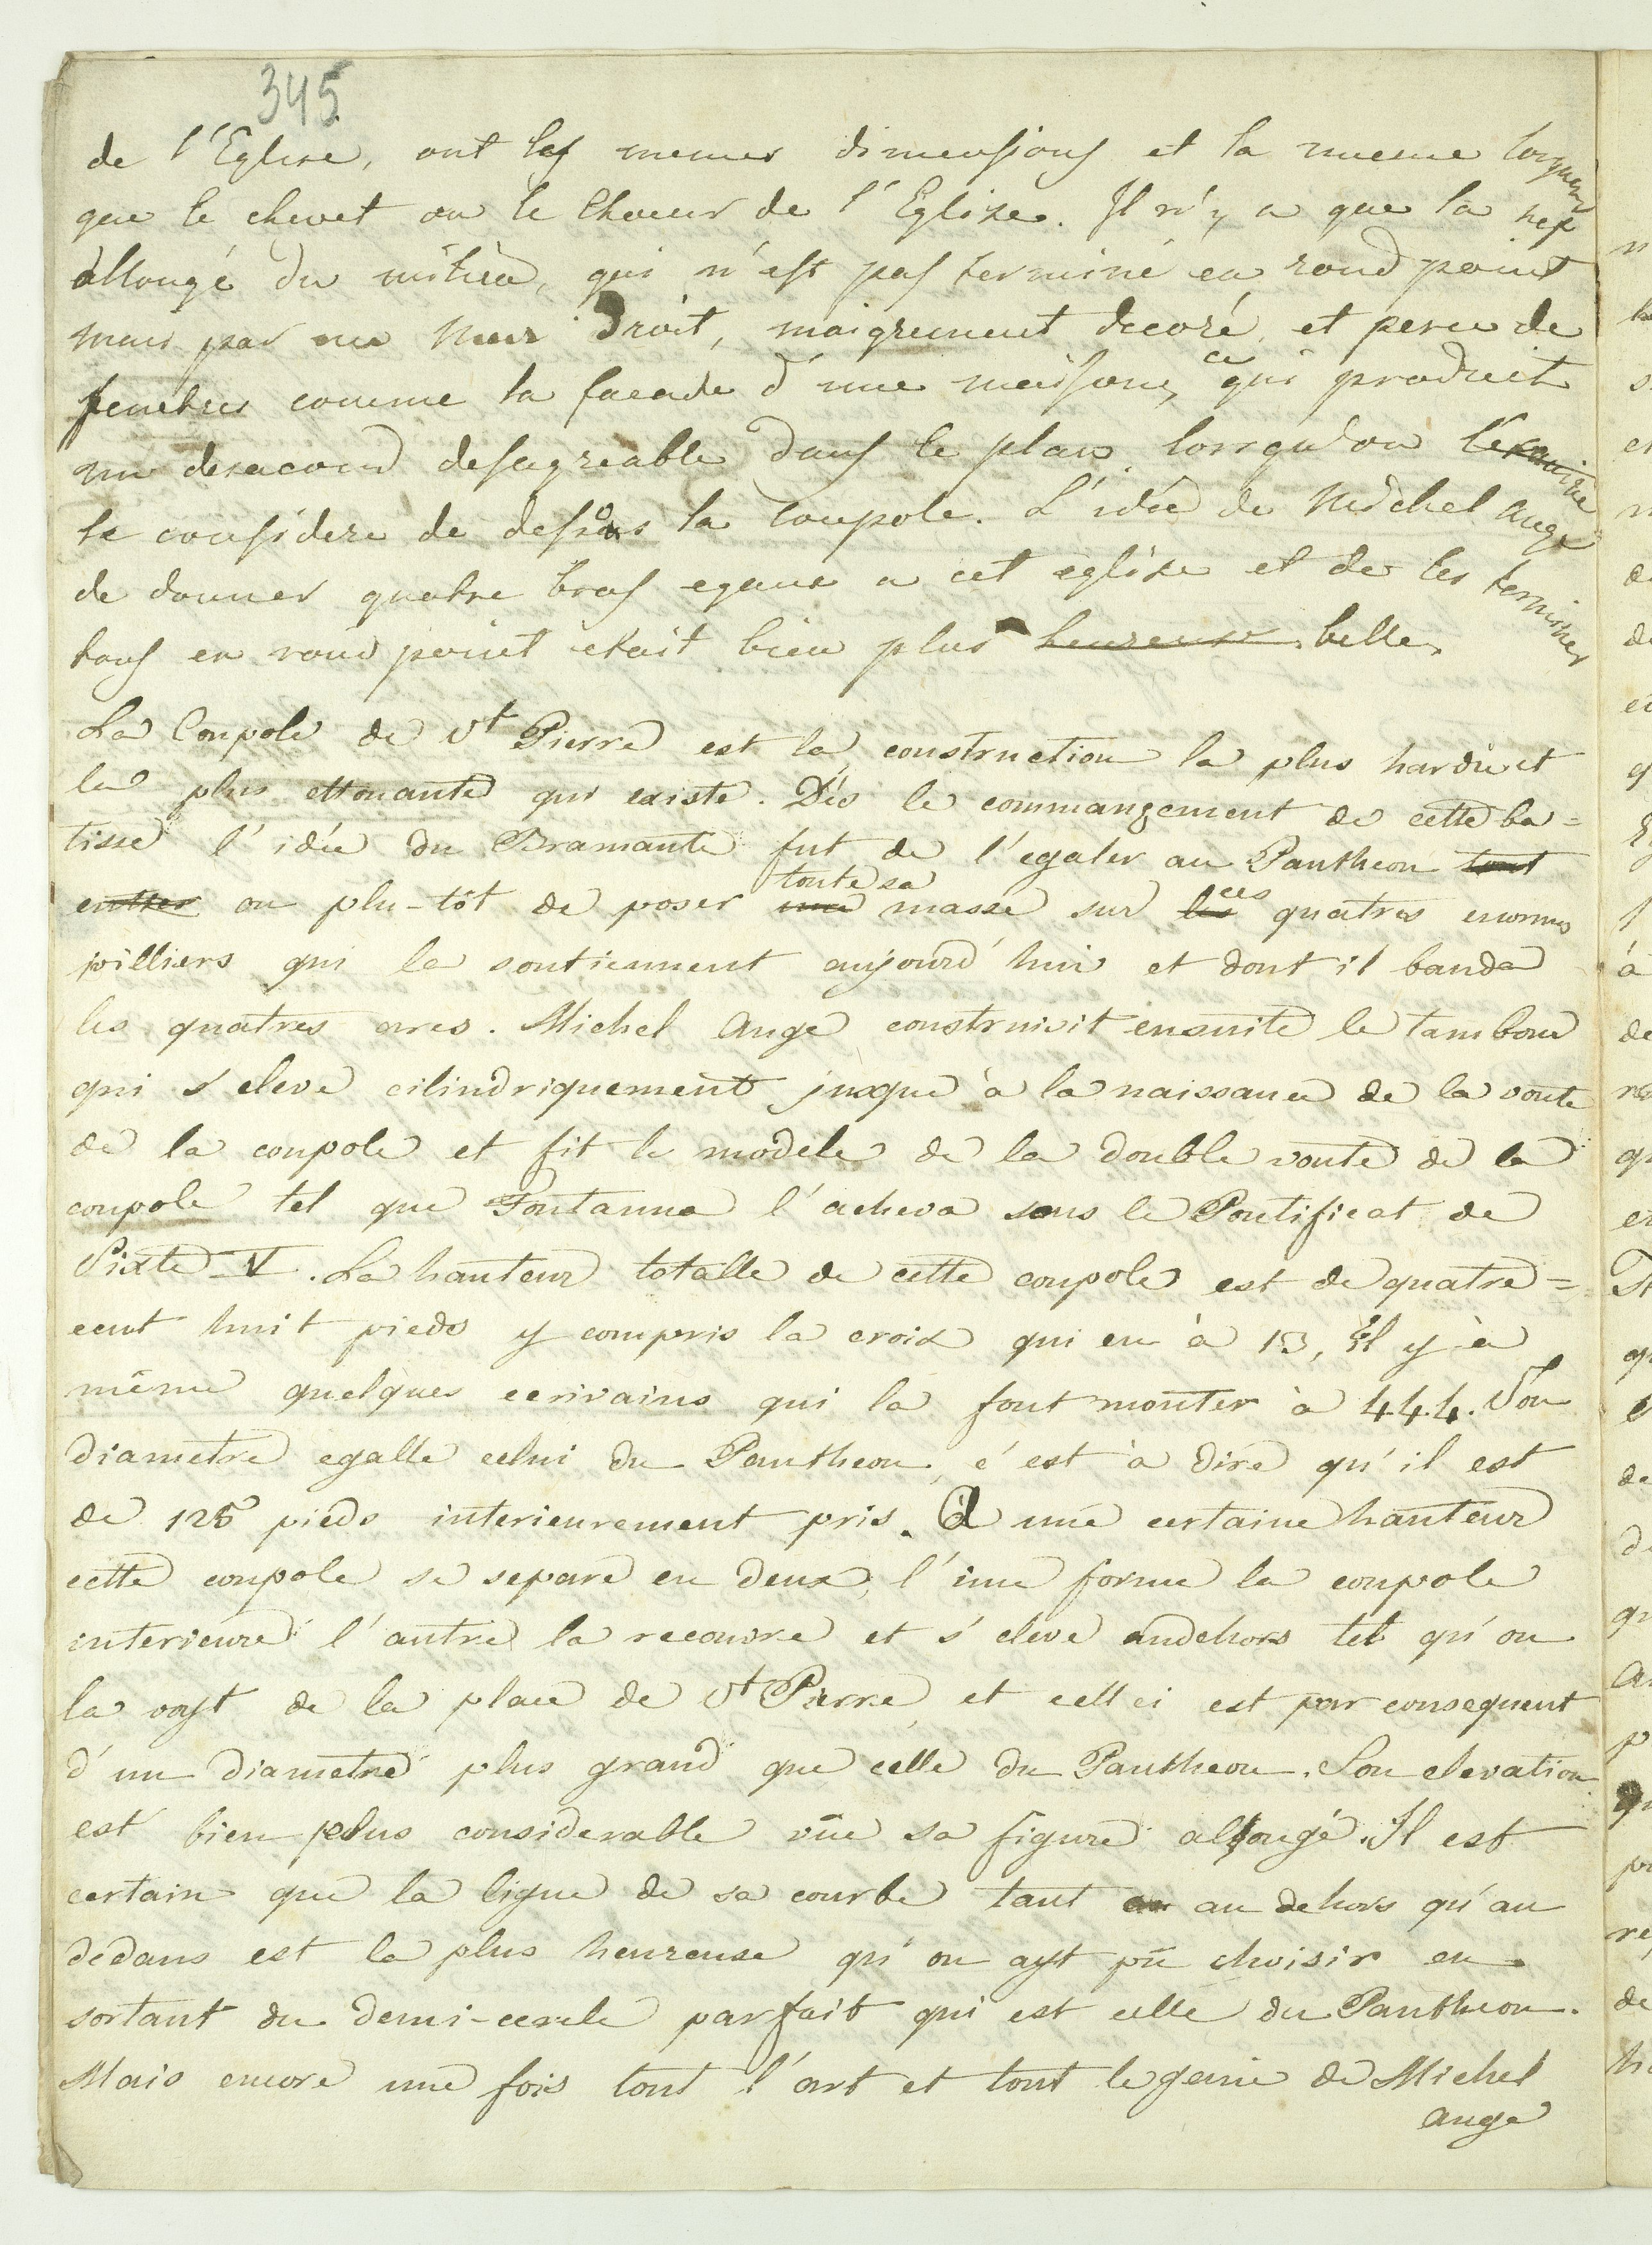 345
de l'Eglise, ont les memes dimensions et la meme longueur
que le chevet ou le Choeur de l'Eglise. Il n'y a que la nef
allongé du milieu, qui n'est pas terminé en rond point
mais par un mur droit, maigrement decoré, et percé de
fenetres comme la facade d'une maison, ce qui produit
un desacord desagreable dans le plan lorsqu'on l'examine
le considere de dessous la coupole. L'idée de Michel ange
de donner quatre bras egaux a cet eglise et de les terminer
tous en rond point etait bien plus heureuse belle.
La Coupole de St Pierre est la construction la plus hardie et
la plus ettonante qui existe. Dès le commançement de cette ba=
tisse l'idée du Bramante fut de l'egaler au Pantheon tout
entier ou plu-tôt de poser une toute sa masse sur les ces quatres enormes
pilliers qui la soutiennent aujourd'hui et dont il banda
les quatres arcs. Michel Ange construisit ensuite le tambour
qui s'eleve cilindriquement jusque à la naissance de la voute
de la coupole et fit le modele de la double voute de la
coupole tel que Fontanna l'acheva sous le Pontificat de
Sixte V. La hauteur totalle de cette coupole est de quatre=
cent huit pieds y compris la croix qui en à 13, il y à
même quelques ecrivains qui la font monter à 444. Son
diametre egalle celui du Pantheon, c'est à dire qu'il est
de 125 pieds interieurement pris. à une certaine hauteur
cette coupole se separe en deux, l'une forme la coupole
interieure l'autre la recouvre et s'eleve audehors tel qu'on
la voyt de la place de St Pierre, et celle ci est par consequent
d'un diametre plus grand que celle du Pantheon. Son elevation
est bien plus considerable vüe sa figure allongé. Il est
certain que la ligne de sa courbe tant au au dehors qu'au
dedans est la plus heureuse qu'on ayt pû choisir en
sortant du demi-cercle parfait qui est celle du Pantheon.
Mais encore une fois tout l'art et tout le genie de Michel
ange